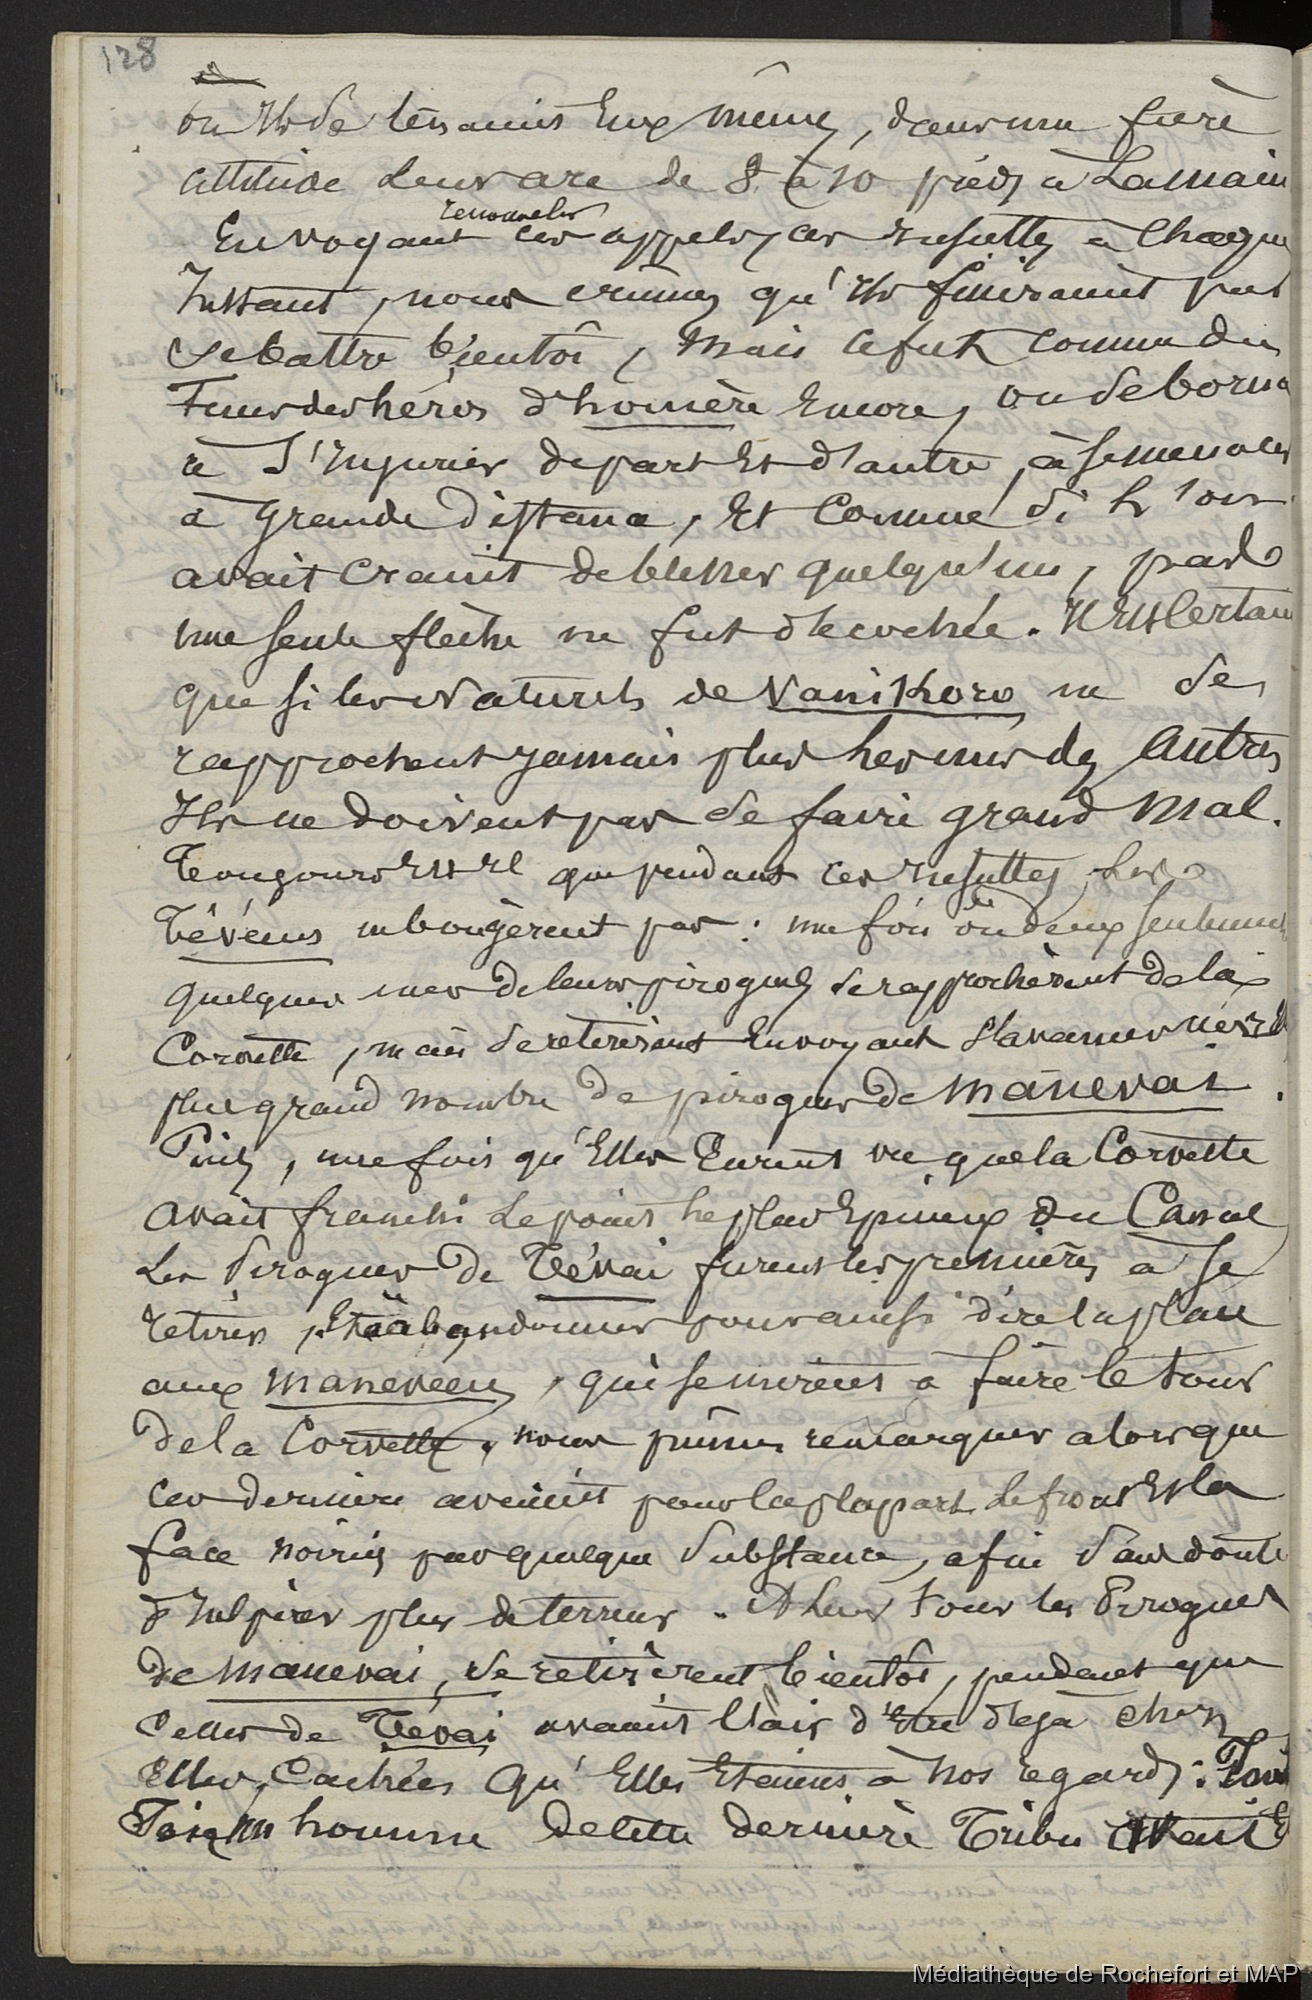 128
ou Ils se tenaient Eux mêmes, dans une fière
attitude Leur arc de 8 à 10 pieds à La main
renouveler
En voyant ces appels, ces insultes à Chaque
Instant, nous crûmes qu'Ils finiraient par
se battre bientôt, Mais ce fut comme du
Tems des héros d'homère Encore, on se borna
à S'Injurier de part Et d'autre, à se menacer
à grande distance, Et Comme si L'on
avait craint de blesser quelqu'un, pas
une seule flèche ne fut décochée. Il Est Certain
que si les Naturels de Vanikoro ne se
rapprochent jamais plus les uns des Autres
Ils ne doivent pas se faire grand Mal.
Toujours Est Il que pendant ces insultes, les
Tévéens ne bougèrent pas : une fois ou deux seulement
quelques unes de leurs pirogues se rapprochèrent de la
Corvette, mais se retirèrent En voyant s'avancer vers Elles
plus grand nombre de pirogues de Manevai.
Puis, une fois qu'Elles Eurent vu que la Corvette
avait franchi Le point le plus Epineux du Canal
Les Pirogues de Tévai furent les premières à se
retirer, Et à abandonner pour ainsi dire la place
aux Maneveens, qui se mirent à faire le tour
de la Corvette, nous pûmes remarquer alors que
ces derniers avaient pour la plupart Le front Et la
face noircis par quelque substance, afin sans doute
d'Inspirer plus de terreur. A leur tour les Pirogues
de Manevai, se retirèrent bientôt, pendant que
Celles de Tévai avaient l'air d'Etre déjà chez
Elles, Cachées qu'Elles Etaient à Nos regards :
homme de cette dernière Tribu Avait